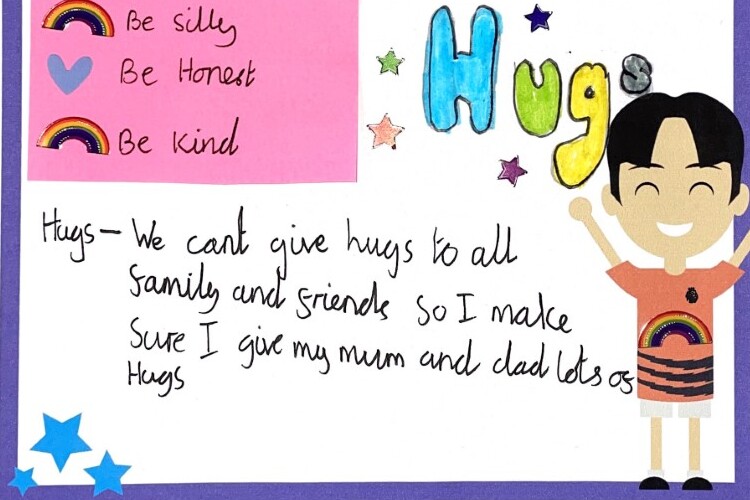 Be silly
Be Honest
Be Kind
Hugs
Hugs - We cant give hugs to all
family and friends so I make
Sure I give my mum and dad lots of
Hugs